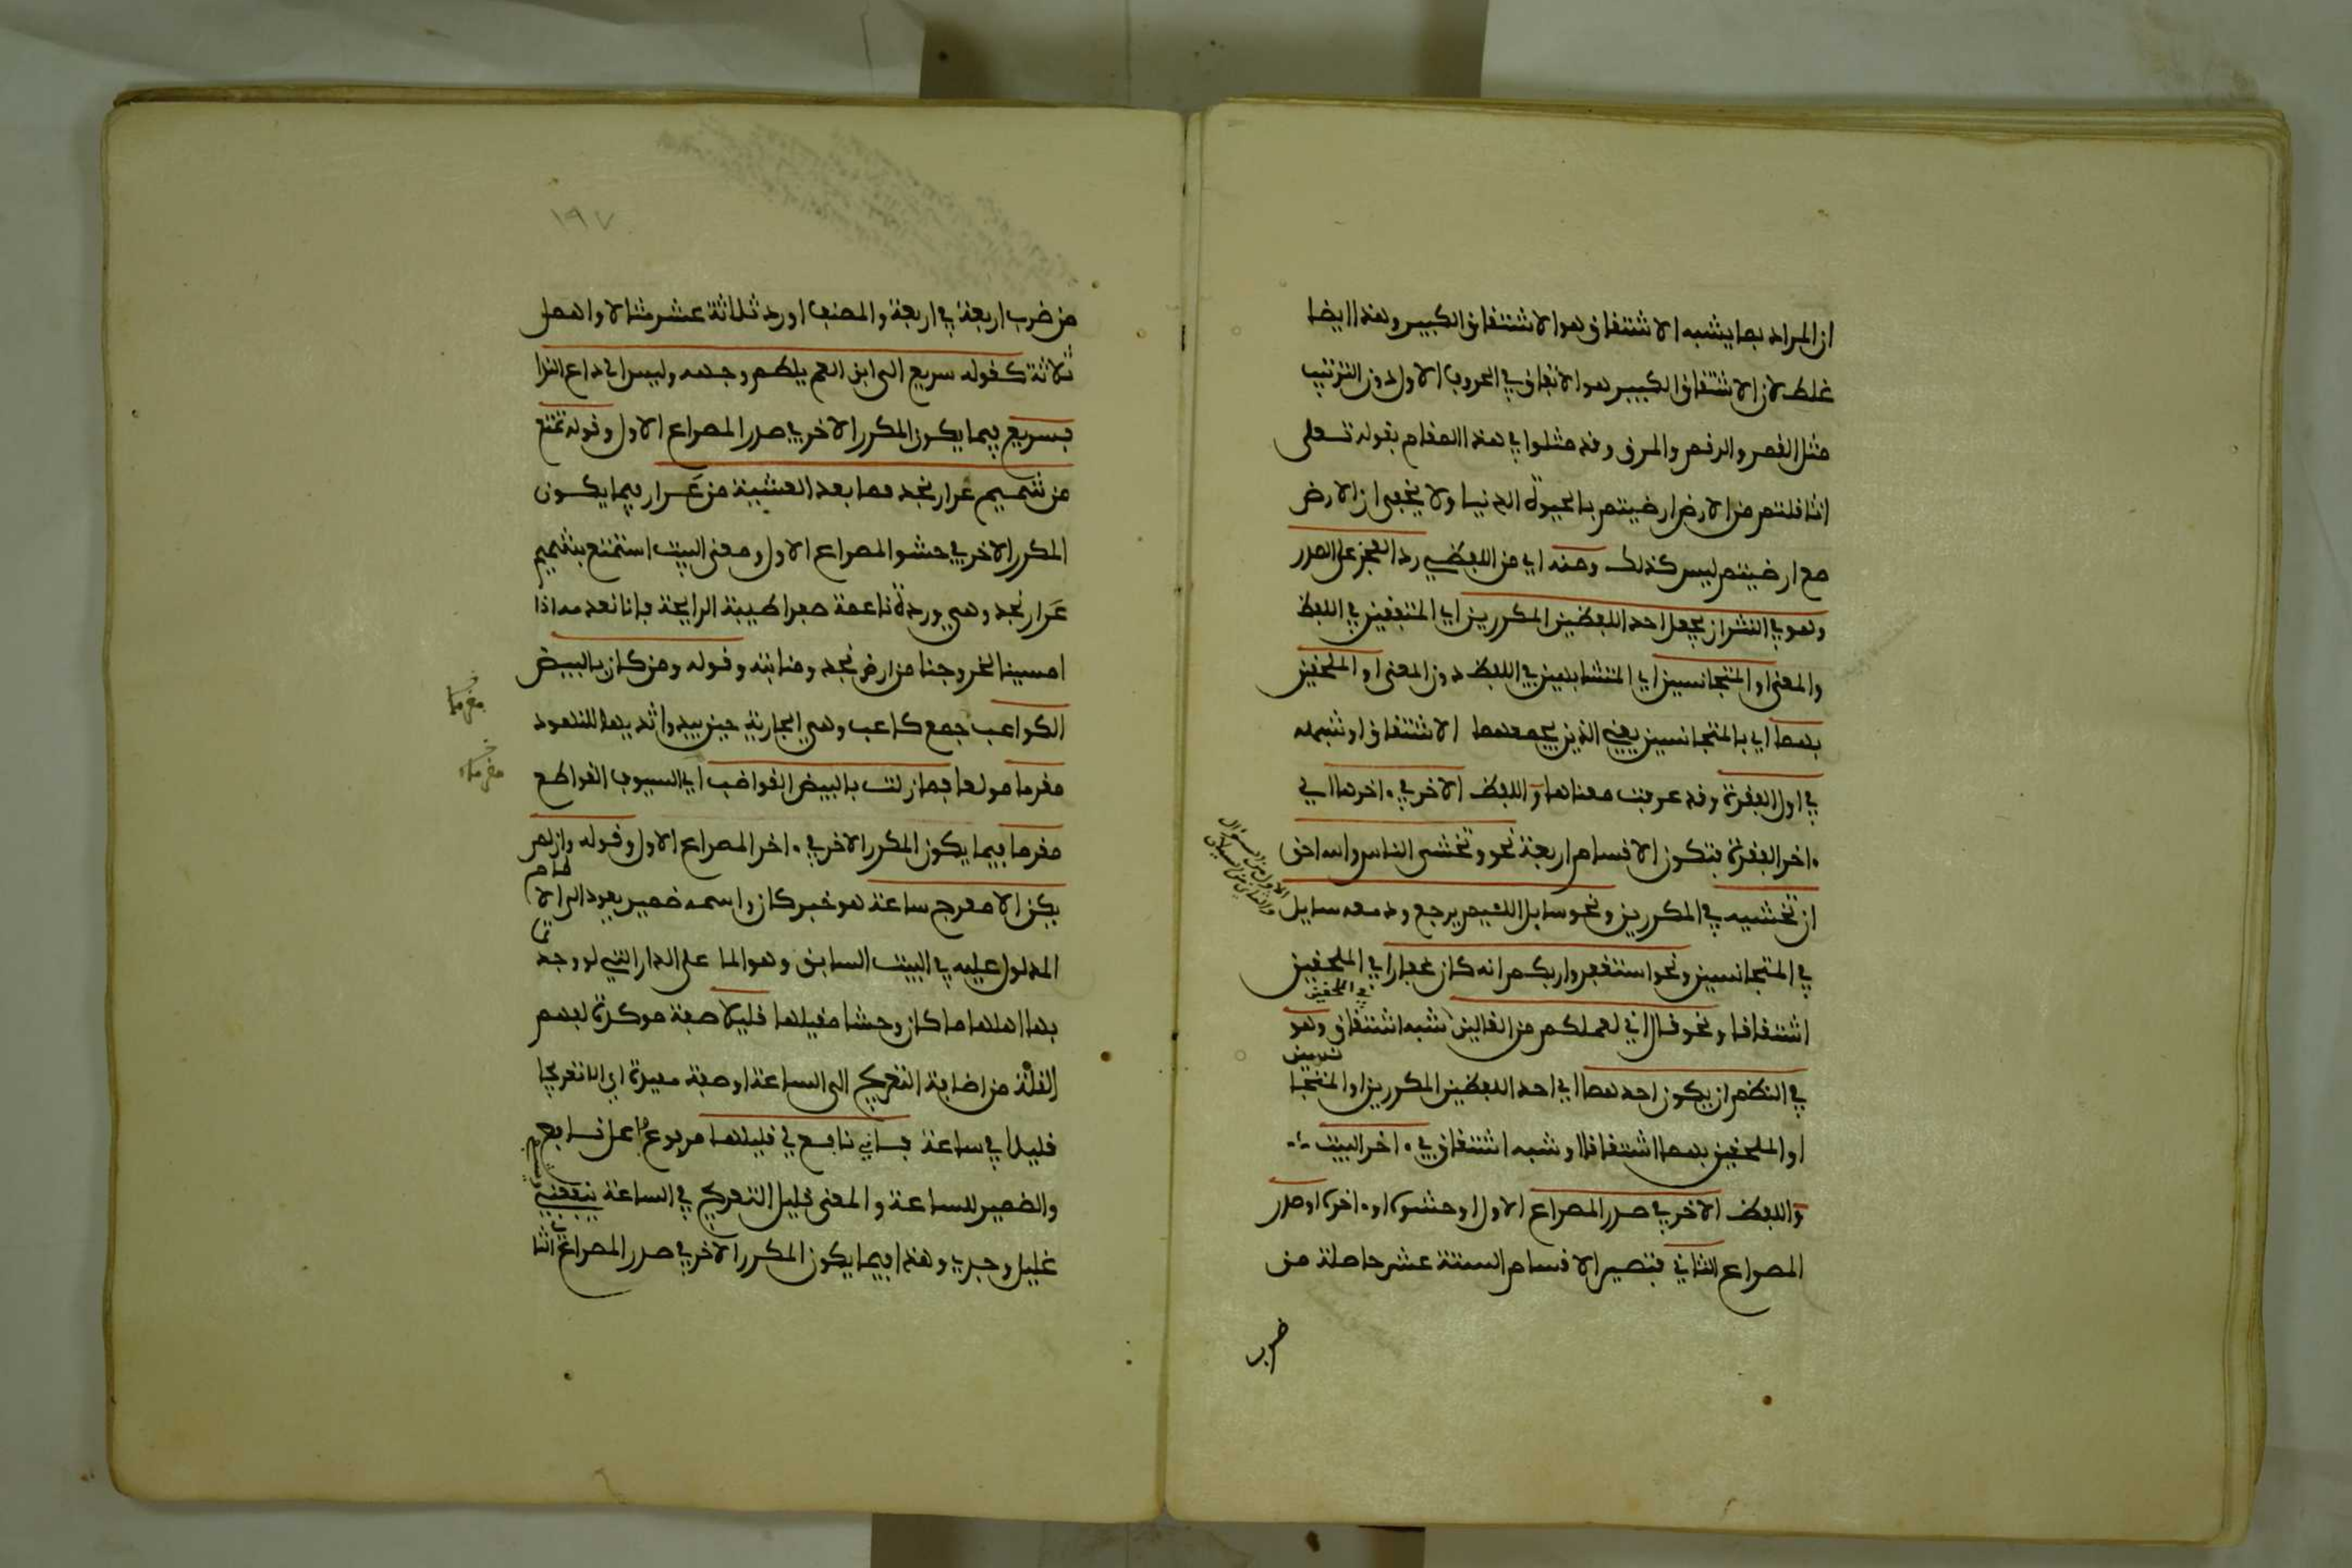 ان المراد بما يشبه الاشتقاق هو الاشتقاق الكبير وهذا ايضا
غلط لان الاشتقاق الكبير هو الاتفاق في الحروف الاول دون الترتيب
مثل القمر والرقم والمرق وقد مثلوا في هذا المقام بقوله تعلى
اثاقلتم من الارض ارضيتم بالحيوة الدنيا ولا يخفى ان الارض
مع ارضيتم ليس كذلك ومنه اي من اللفظي رد العجز على الصدر
وهو في النثر ان يجعل احد اللفظين المكررين اي المتفقين في اللفظ
والمعنى او المتجانسين اي المتشابهين في اللفظ دون المعنى او الملحقين
بهما اي بالمتجانسين يعني الذين يجمعهما الاشتقاق او شبهه
في اول الفقرة وقد عرفت معناها واللفظ الاخر في ءاخرها اي
ءاخر الفقرة فتكون الاقسام اربعة نحو وتخشى الناس والله احق
ان تخشيه في المكررين ونحو سايل اللئيم يرجع ودمعه سايل
الاول من السؤال
والثاني من السيلان
في المتجانسين ونحو استغفروا ربكم انه كان غفارا في الملحقين
اشتقاقا ونحو قال اني لعملكم من القالين شبه اشتقاق وهو
في الملحقين
في النظم ان يكون احدهما اي احد اللفظين المكررين او المتجا
نسين
او الملحقين بهما اشتقاقا او شبه اشتقاق في ءاخر البيت
واللفظ الاخر في صدر المصراع الاول او حشوه او ءاخره او صدر
المصراع الثاني فتصير الاقسام الستة عشر حاصلة من
ضرب
١٩٧
من ضرب اربعة في اربعة والمصنف اورد ثلاثة عشر مثالا واهمل
ثلاثة كقوله سريع الى ابن العم يلطم وجهه وليس الى داع الندا
بسريع فيما يكون المكرر الاخر في صدر المصراع الاول وقوله تمتع
من شميم عرار نجد فما بعد العشية من عرار فيما يكون
المكرر الاخر في حشو المصراع الاول ومعنى البيت استمتع بشميم
عرار نجد وهي وردة ناعمة صفرا طيبة الرايحة فانا نعدمه اذا
امسينا لخروجنا من ارض نجد ومنابته وقوله ومن كان بالبيض
الكواعب جمع كاعب وهي الجارية حين يبدوا ثديها للنهود
مغرما مولعا فما زلت بالبيض القواضب اي السيوف القواطع
مغرما فيما يكون المكرر الاخر في ءاخر المصراع الاول وقوله وان لم
يكن الا معرج ساعة هو خبر كان واسمه ضمير يعود الى الا
لمام
المدلول عليه في البيت السابق وهو الما على الدار التي لو وجد
بها اهلها ما كان وحشا مقيلها قليلا صفة موكدة لفهم
القلة من اضافة التعريج الى الساعة او صفة مقيدة اي الا تعريجا
قليلا في ساعة فاني نافع لي قليلها مرفوع فاعل نافع
والضمير للساعة والمعنى قليل التعريج في الساعة ينفعني
غليل وجدي وهذا فيما يكون المكرر الاخر في صدر المصراع الثا